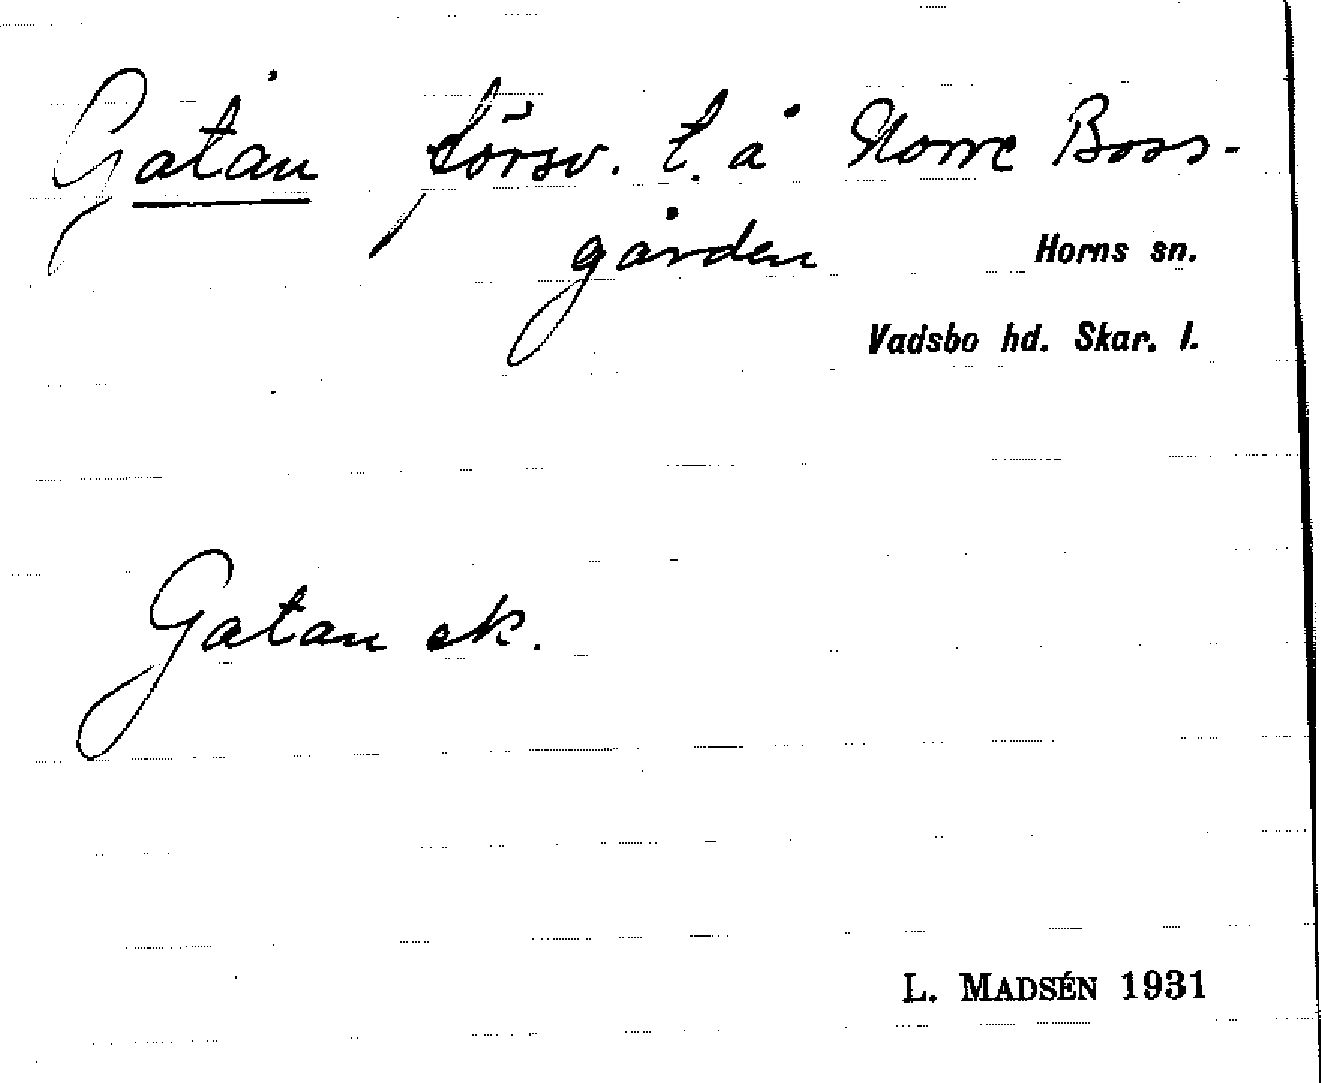 Gatȧn försv. t. å Norre Boss-
gården Horns sn.
Vadsbo hd. Skar. l.
Gatan ek.
L. MADSÉN 1931